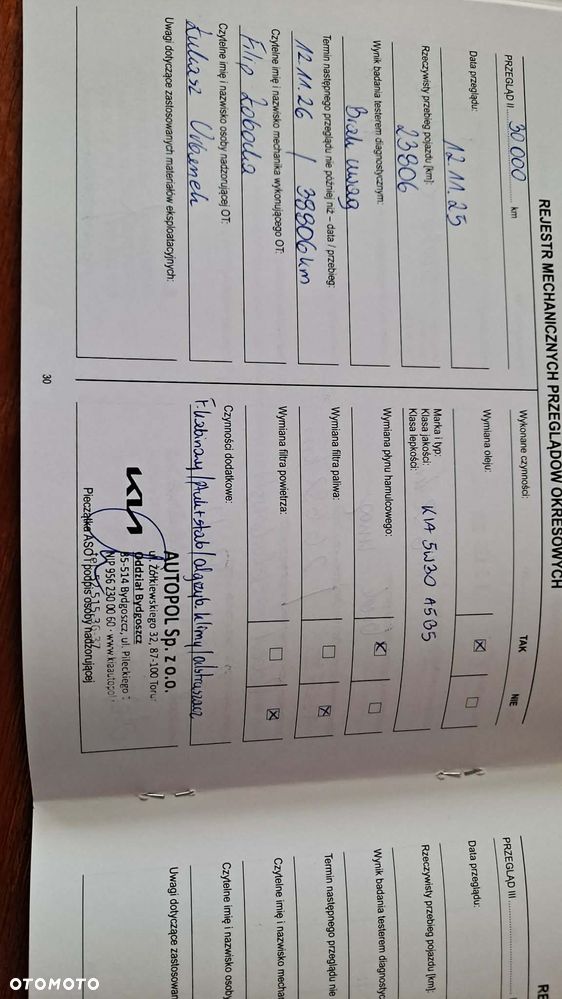 REJESTR MECHANICZNYCH PRZEGLĄDÓW OKRESOWYCH
PRZEGLĄD II.....30 000.....km
Data przeglądu:
12 11 25
Rzeczywisty przebieg pojazdu [km]:
23806
Wynik badania testerem diagnostycznym:
Brak uwag
Termin następnego przeglądu nie później niż – data / przebieg:
12 11.26 / 38806 km
Czytelne imię i nazwisko mechanika wykonującego OT:
Filip
Czytelne imię i nazwisko osoby nadzorującej OT:
Łukasz
Uwagi dotyczące zastosowanych materiałów eksploatacyjnych:
Wykonane czynności: TAK NIE
Wymiana oleju: ☒ ☐
Marka i typ:
Klasa jakości: KIA 5W30 A5B5
Klasa lepkości:
Wymiana płynu hamulcowego: ☒ ☐
Wymiana filtra paliwa: ☐ ☒
Wymiana filtra powietrza: ☐ ☒
Czynności dodatkowe:
F. kabinowy / / klimy /
KIA
AUTOPOL Sp. z o.o.
ul. Żółkiewskiego 32, 87-100 Toru
Oddział Bydgoszcz
85-514 Bydgoszcz, ul. Pileckiego
NIP 956 230 00 60 · www.kiaautopol
Pieczątka ASO i podpis osoby nadzorującej
30
RE
PRZEGLĄD III
Data przeglądu:
Rzeczywisty przebieg pojazdu [km]:
Wynik badania testerem diagnostyc
Termin następnego przeglądu nie
Czytelne imię i nazwisko mecha
Czytelne imię i nazwisko osoby
Uwagi dotyczące zastosowan
OTOMOTO